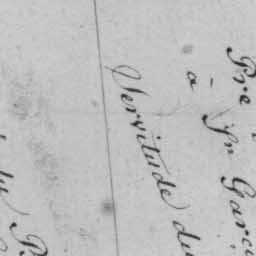 Pre
à
Sr Garc
Servitude du
du P